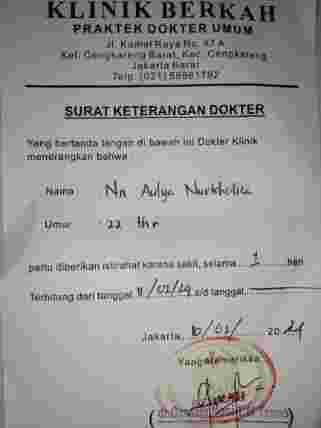 KLINIK BERKAH
PRAKTEK DOKTER UMUM
Jl. Kamal Raya No. 47 A
Kel. Cengkareng Barat, Kec. Cengkareng
Jakarta Barat
Telp. (021)
SURAT KETERANGAN DOKTER
Yang bertanda tangan di bawah ini Dokter Klinik
menerangkan bahwa
Nama Nn Aulya Nurkholica
Umur 22 thn
perlu diberikan istirahat karena sakit, selama 1 hari
Terhitung dari tanggal s/d tanggal
Jakarta, 2024
Yang Memeriksa